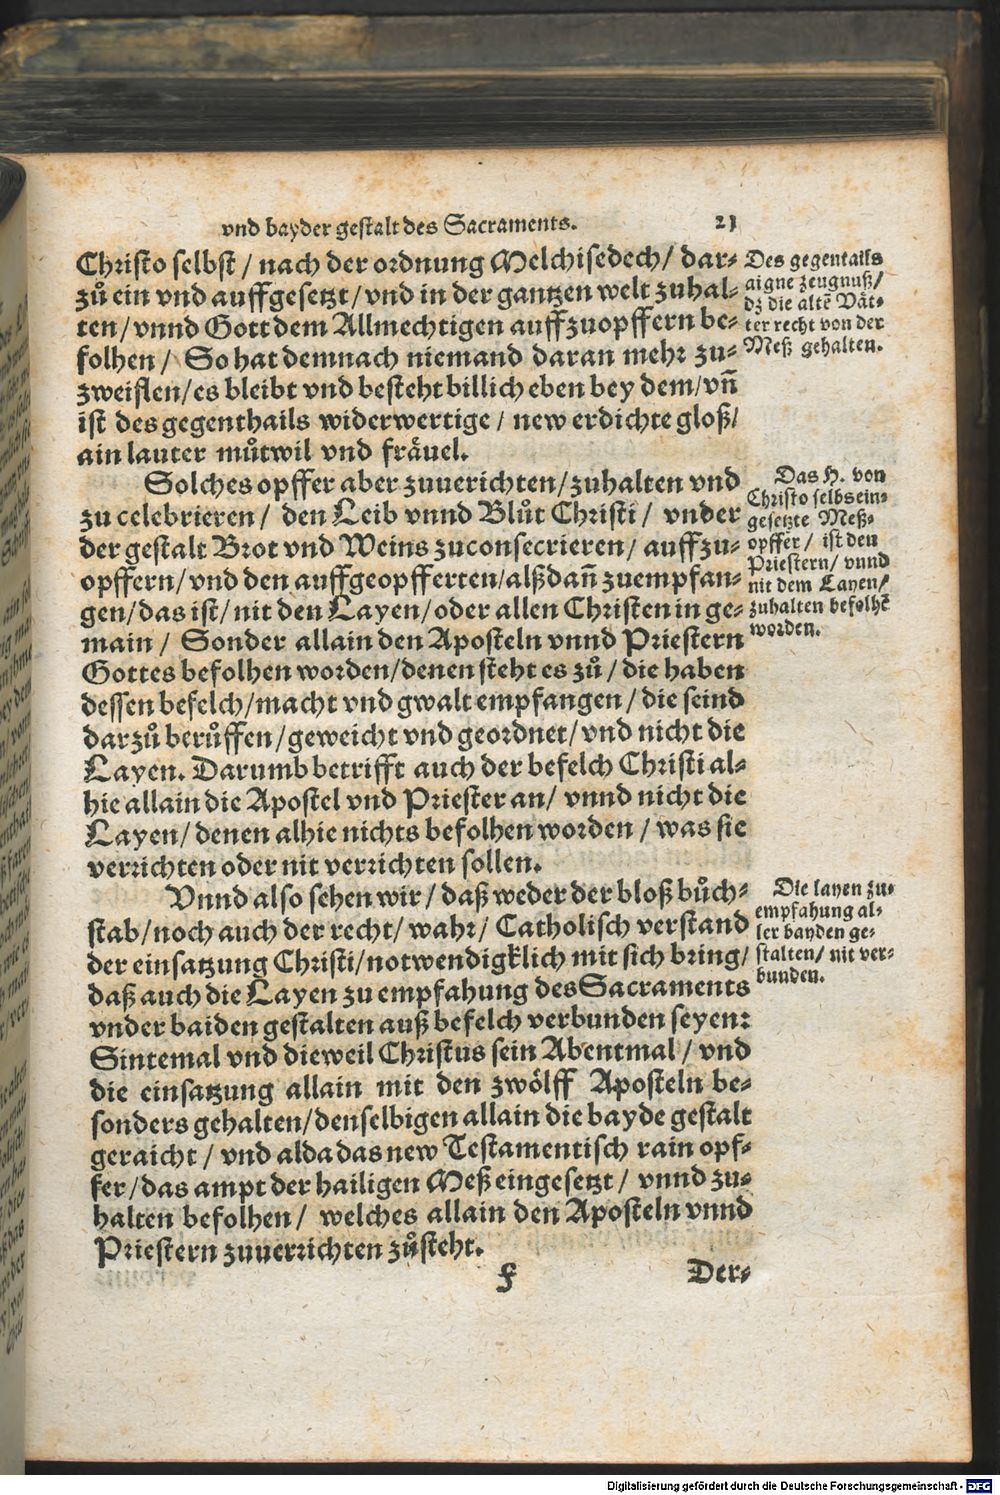 vnd bayder gestalt des Sacraments. 21
Christo selbst / nach der ordnung Melchisedech / dar-
zů ein vnd auffgesetzt / vnd in der gantzen welt zuhal-
ten / vnnd Gott dem Allmechtigen auffzuopffern be-
folhen / So hat demnach niemand daran mehr zu-
zweiflen / es bleibt vnd besteht billich eben bey dem / vñ
ist des gegenthails widerwertige / new erdichte gloß /
ain lauter můtwil vnd fräuel.
Des gegentails
aigne zeugnuß /
dz die altē Vät-
ter recht von der
Meß gehalten.
Solches opffer aber zuuerichten / zuhalten vnd
zu celebrieren / den Leib vnnd Blůt Christi / vnder
der gestalt Brot vnd Weins zuconsecrieren / auffzu-
opffern / vnd den auffgeopfferten / alßdañ zuempfan-
gen / das ist / nit den Layen / oder allen Christen in ge-
main / Sonder allain den Aposteln vnnd Priestern
Gottes befolhen worden / denen steht es zů / die haben
dessen befelch / macht vnd gwalt empfangen / die seind
darzů berůffen / geweicht vnd geordnet / vnd nicht die
Layen. Darumb betrifft auch der befelch Christi al-
hie allain die Apostel vnd Priester an / vnnd nicht die
Layen / denen alhie nichts befolhen worden / was sie
verrichten oder nit verrichten sollen.
Das H. von
Christo selbs ein-
gesetzte Meß-
opffer / ist den
Priestern / vnnd
nit dem Layen /
zuhalten befolhē
worden.
Vnnd also sehen wir / daß weder der bloß bůch-
stab / noch auch der recht / wahr / Catholisch verstand
der einsatzung Christi / notwendigklich mit sich bring /
daß auch die Layen zu empfahung des Sacraments
vnder baiden gestalten auß befelch verbunden seyen:
Sintemal vnd dieweil Christus sein Abentmal / vnd
die einsatzung allain mit den zwölff Aposteln be-
sonders gehalten / denselbigen allain die bayde gestalt
geraicht / vnd alda das new Testamentisch rain opf-
fer / das ampt der hailigen Meß eingesetzt / vnnd zu-
halten befolhen / welches allain den Aposteln vnnd
Priestern zuuerrichten zůsteht.
Die layen zu-
empfahung al-
ler bayden ge-
stalten / nit ver-
bunden.
f Der-
Digitalisierung gefördert durch die Deutsche Forschungsgemeinschaft - DFG